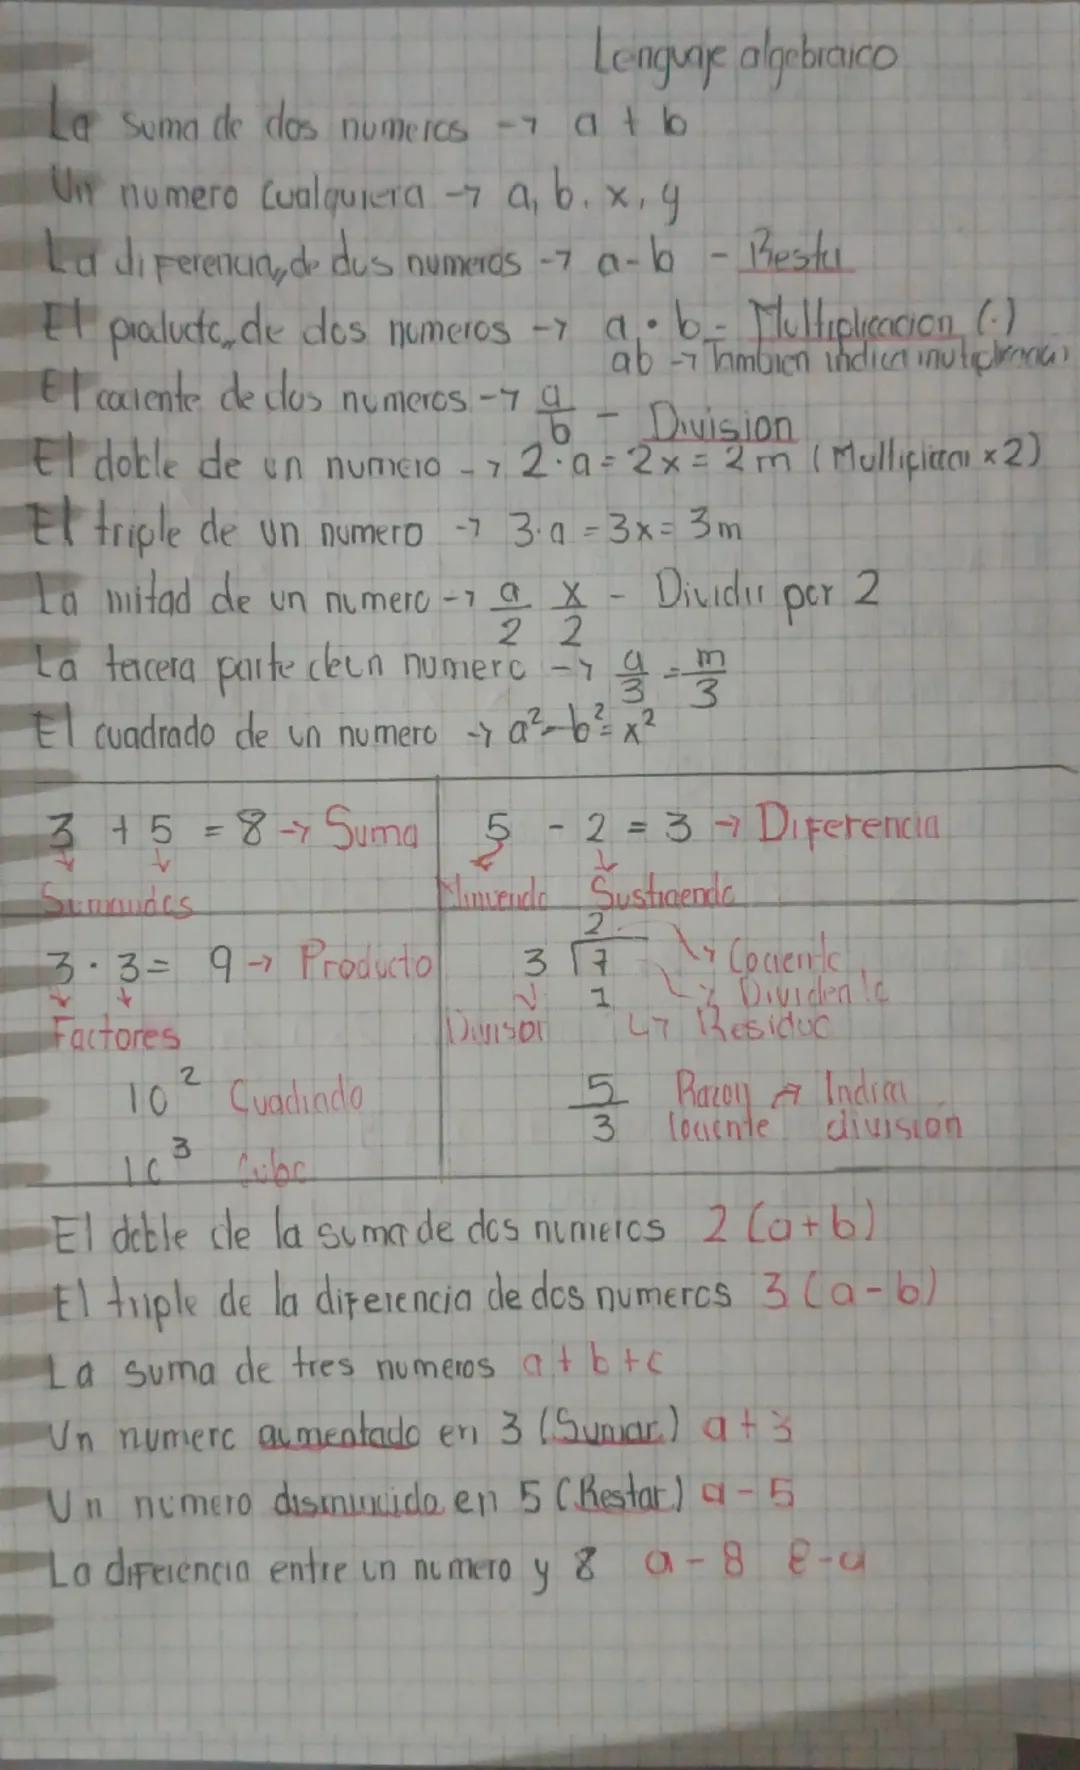 Lenguaje algebraico
La suma de dos numeros → a + b
Un numero cualquiera → a, b, x, y
La diferencia de dos numeros → a - b - Resta
El producto de dos numeros → a · b - Multiplicacion (·)
ab → Tambien indica
El cociente de dos numeros → a/b - Division
El doble de un numero → 2·a = 2x = 2m (Multiplicar x2)
El triple de un numero → 3·a = 3x = 3m
La mitad de un numero → a/2 x/2 - Dividir por 2
La tercera parte de un numero → a/3 = m/3
El cuadrado de un numero → a² = b² = x²
3 + 5 = 8 → Suma
Sumandos
5 - 2 = 3 → Diferencia
Minuendo Sustraendo
3 · 3 = 9 → Producto
Factores
2 → Cociente
3 √7 → Dividendo
1 ↳ Residuo
Divisor
10² Cuadrado
10³ Cubo
5/3 Razon → Indica
Cociente division
El doble de la suma de dos numeros 2 (a+b)
El triple de la diferencia de dos numeros 3 (a-b)
La suma de tres numeros a + b + c
Un numero aumentado en 3 (Sumar) a + 3
Un numero disminuido en 5 (Restar) a - 5
La diferencia entre un numero y 8 a - 8 8-a